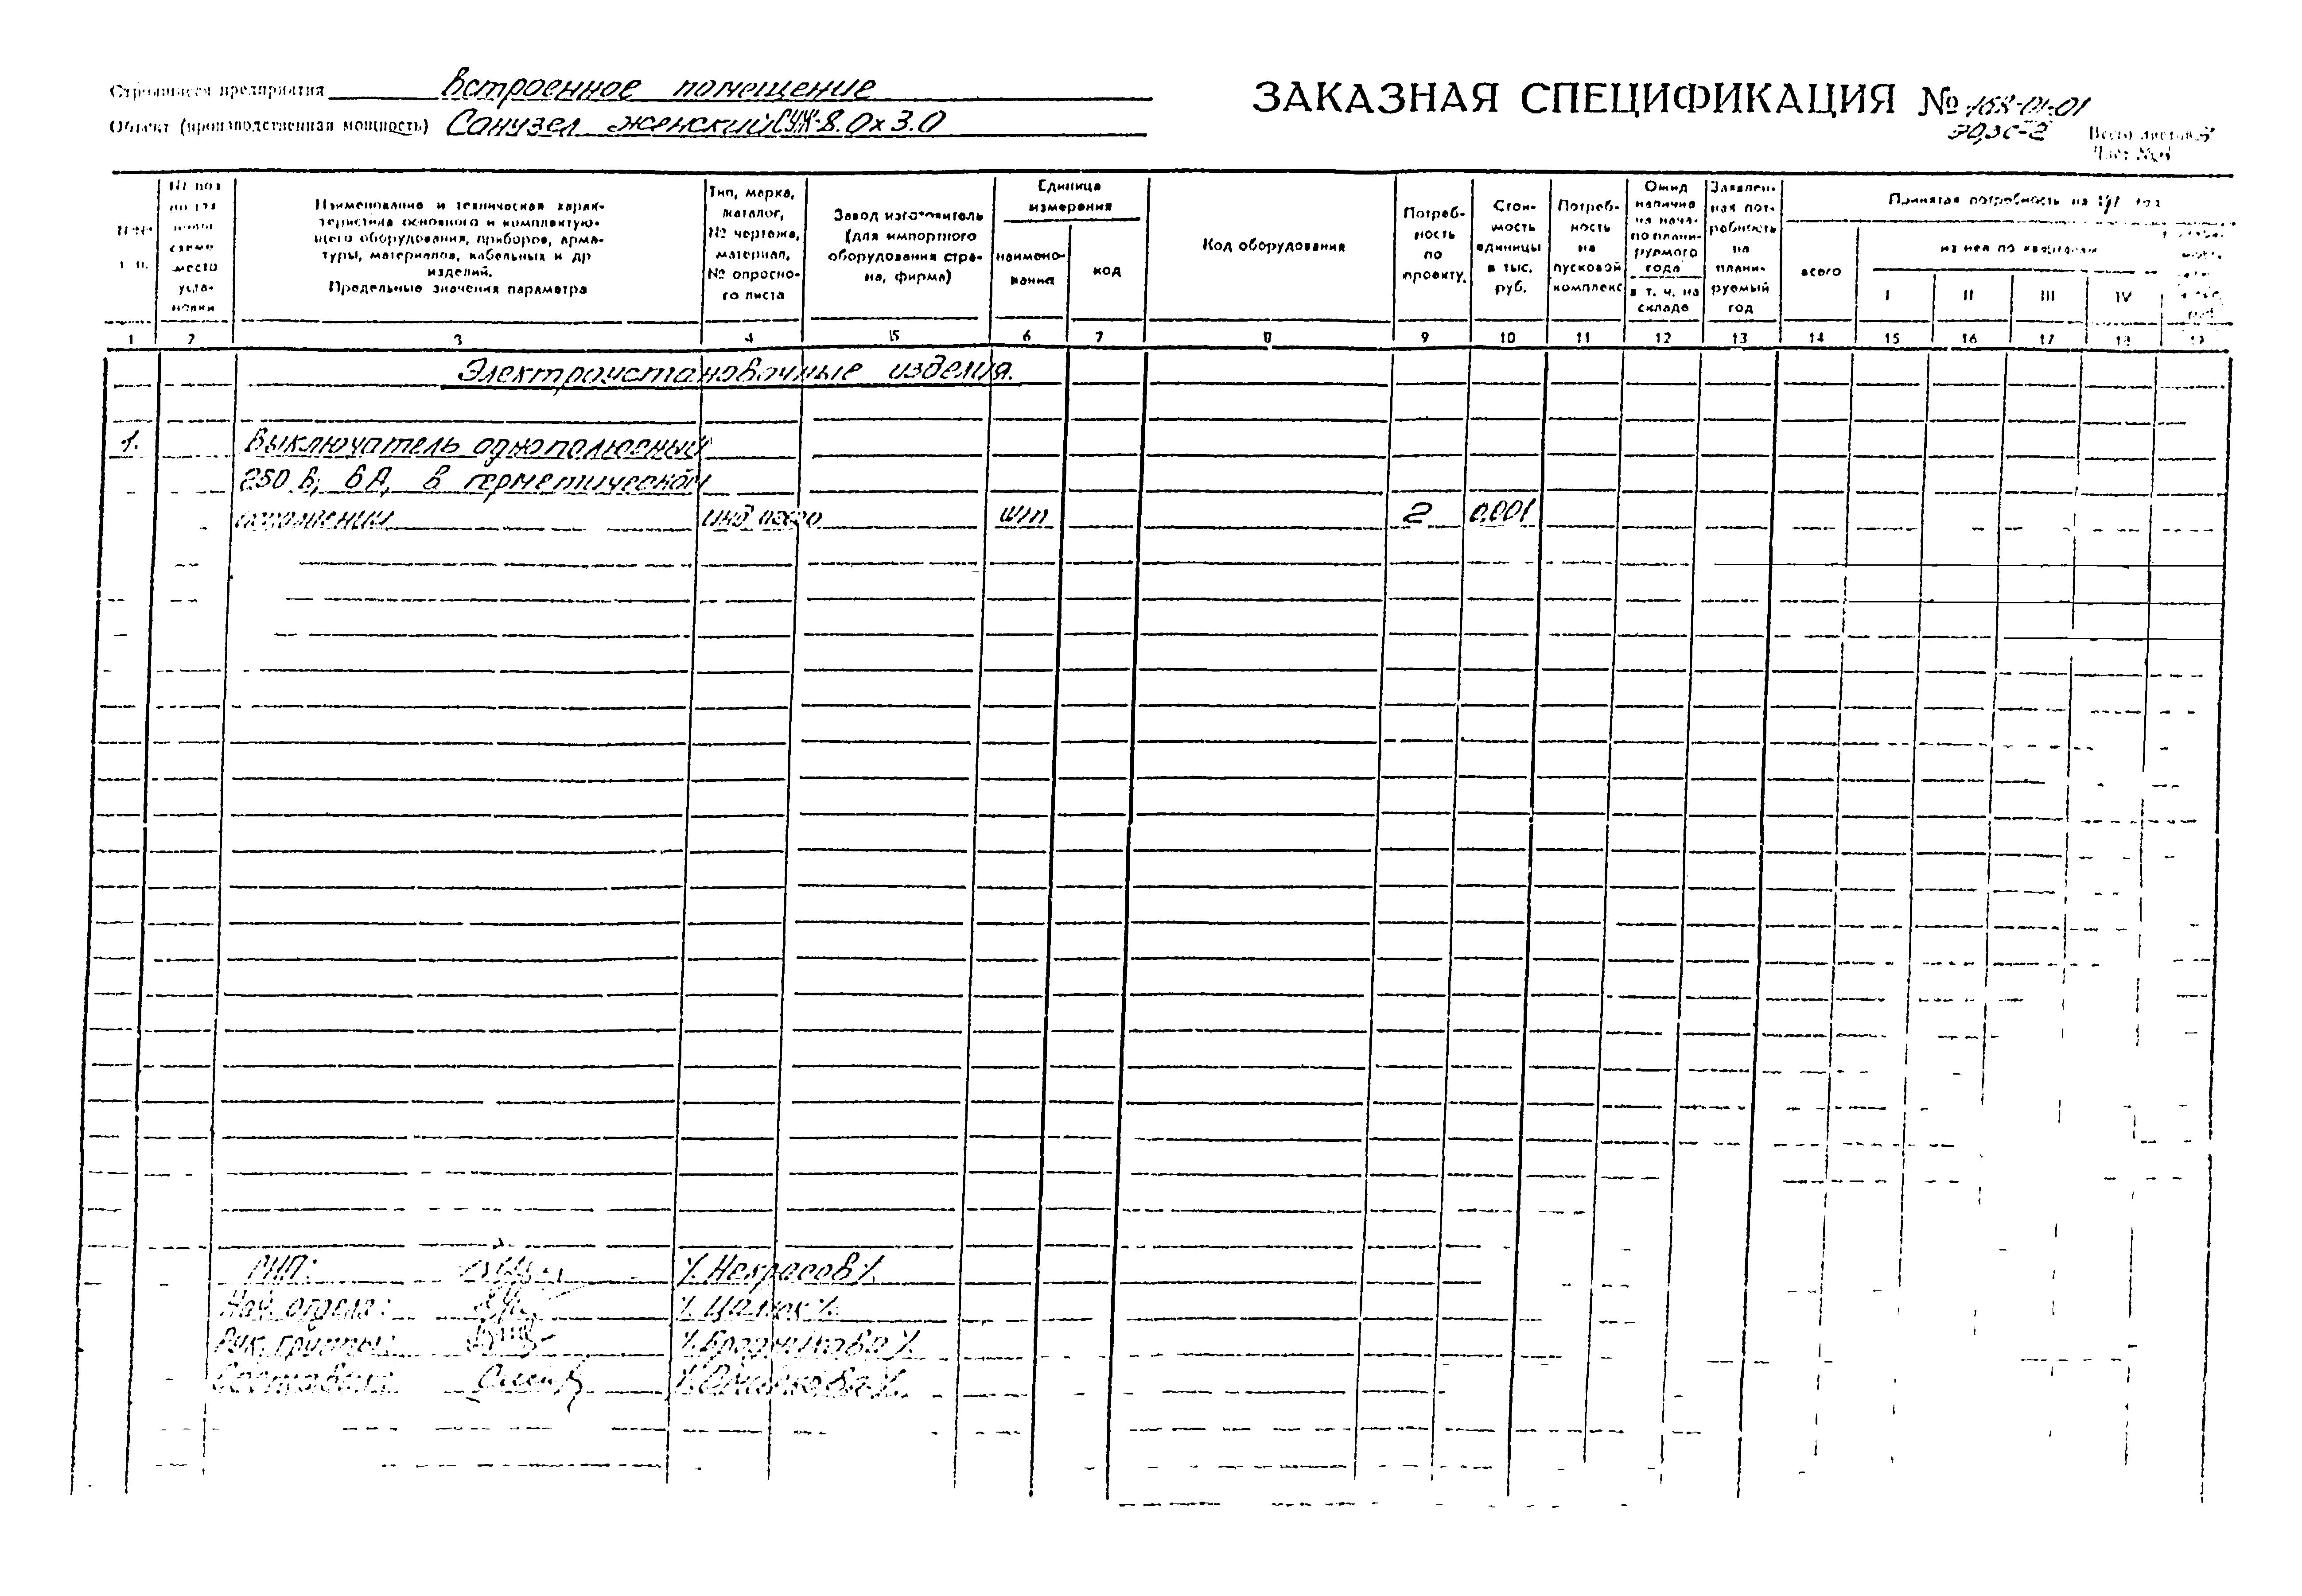 Строящееся предприятия Встроенное помещение
ЗАКАЗНАЯ СПЕЦИФИКАЦИЯ № 168-01-01
Объект (производственная мощность) Санузел женский СУЖ-8.0х3.0
ЭО,ЭС-2
Всего листов
Лист №
№ поз
место
уста-
новки
Наименование и техническая харак-
теристика основного и комплектую-
щего оборудования, приборов, арма-
туры, материалов, кабельных и др
изделий.
Предельные значения параметра
Тип, марка,
каталог,
№ чертежа,
материал,
№ опросно-
го листа
Завод изготовитель
(для импортного
оборудования стра-
на, фирма)
Единица
измерения
наимено-
вание
код
Код оборудования
Потреб-
ность
по
проекту.
Стои-
мость
единицы
в тыс.
руб.
Потреб-
ность
на
пусковой
комплекс
Ожид
наличие
на нача-
ло плани-
руемого
года
в т. ч. на
складе
Заявлен-
ная пот-
ребность
на
плани-
руемый
год
Принятая потребность на 19 год
всего
из нея по кварталам
I II III IV
1 2 3 4 5 6 7 8 9 10 11 12 13 14 15 16 17 18 19
Электроустановочные изделия.
1. Выключатель однополюсный
250 В, 6А, в герметической
исполнении шт 2 0,001
ГИП: /. Некрасов /.
Нач. отдела:
Рук. группы:
Составил: